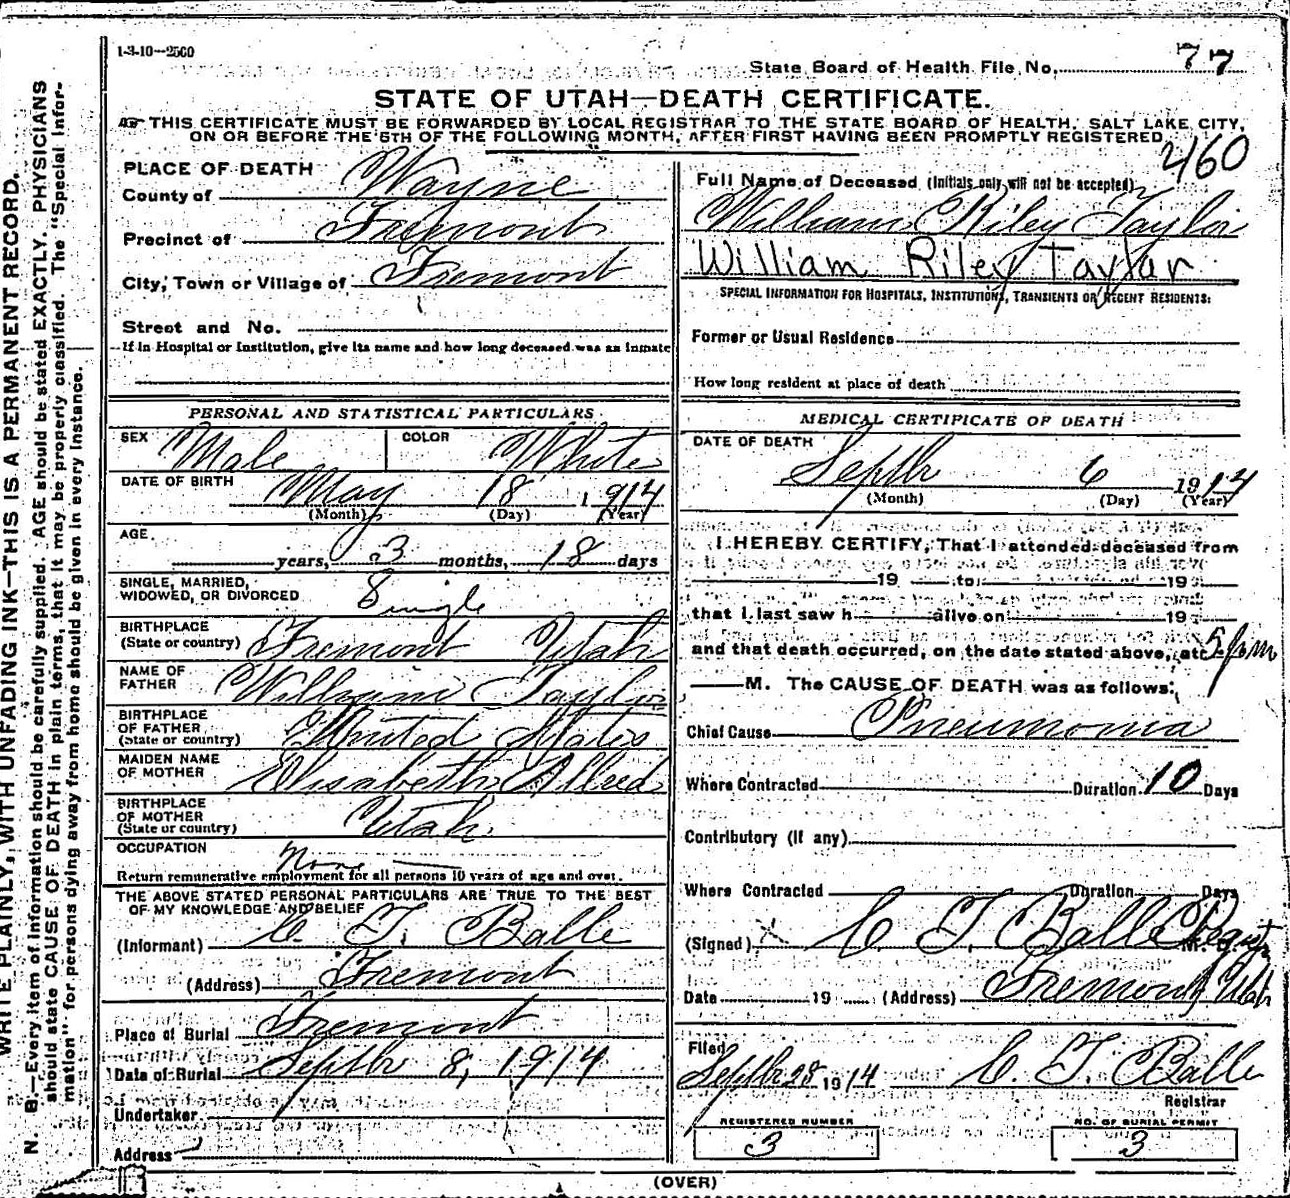 1-3-10—2560
State Board of Health File No. 77
STATE OF UTAH—DEATH CERTIFICATE.
THIS CERTIFICATE MUST BE FORWARDED BY LOCAL REGISTRAR TO THE STATE BOARD OF HEALTH, SALT LAKE CITY,
ON OR BEFORE THE 5TH OF THE FOLLOWING MONTH, AFTER FIRST HAVING BEEN PROMPTLY REGISTERED.
460
PLACE OF DEATH
County of Wayne
Precinct of Fremont
City, Town or Village of Fremont
Street and No.
If in Hospital or Institution, give its name and how long deceased was an inmate
PERSONAL AND STATISTICAL PARTICULARS
SEX Male COLOR White
DATE OF BIRTH May 18 1914
(Month) (Day) (Year)
AGE
years, 3 months, 18 days
SINGLE, MARRIED,
WIDOWED, OR DIVORCED Single
BIRTHPLACE
(State or country) Fremont Utah
NAME OF
FATHER William Taylor
BIRTHPLACE
OF FATHER
(State or country) United States
MAIDEN NAME
OF MOTHER Elisabeth Allred
BIRTHPLACE
OF MOTHER
(State or country) Utah
OCCUPATION None
Return remunerative employment for all persons 10 years of age and over.
THE ABOVE STATED PERSONAL PARTICULARS ARE TRUE TO THE BEST
OF MY KNOWLEDGE AND BELIEF
(Informant) C. T. Balle
(Address) Fremont
Place of Burial Fremont
Date of Burial Septbr 8, 1914
Undertaker
Address
Full Name of Deceased (Initials only will not be accepted)
William Riley Taylor
William Riley Taylor
SPECIAL INFORMATION FOR HOSPITALS, INSTITUTIONS, TRANSIENTS OR RECENT RESIDENTS:
Former or Usual Residence
How long resident at place of death
MEDICAL CERTIFICATE OF DEATH
DATE OF DEATH
Septbr 6 1914
(Month) (Day) (Year)
I HEREBY CERTIFY, That I attended deceased from
19 to 19
that I last saw h alive on 19
and that death occurred, on the date stated above, at 5 p m
M. The CAUSE OF DEATH was as follows:
Chief Cause Pneumonia
Where Contracted Duration 10 Days
Contributory (if any)
Where Contracted Duration Days
(Signed) X C T. Balle Regist M. D.
Date 19 (Address) Fremont Utah
Filed
Septbr 28 1914 C. T. Balle
Registrar
REGISTERED NUMBER
3
NO. OF BURIAL PERMIT
3
(OVER)
WRITE PLAINLY, WITH UNFADING INK—THIS IS A PERMANENT RECORD.
N. B.—Every item of information should be carefully supplied. AGE should be stated EXACTLY. PHYSICIANS
should state CAUSE OF DEATH in plain terms, that it may be properly classified. The "Special Infor-
mation" for persons dying away from home should be given in every instance.